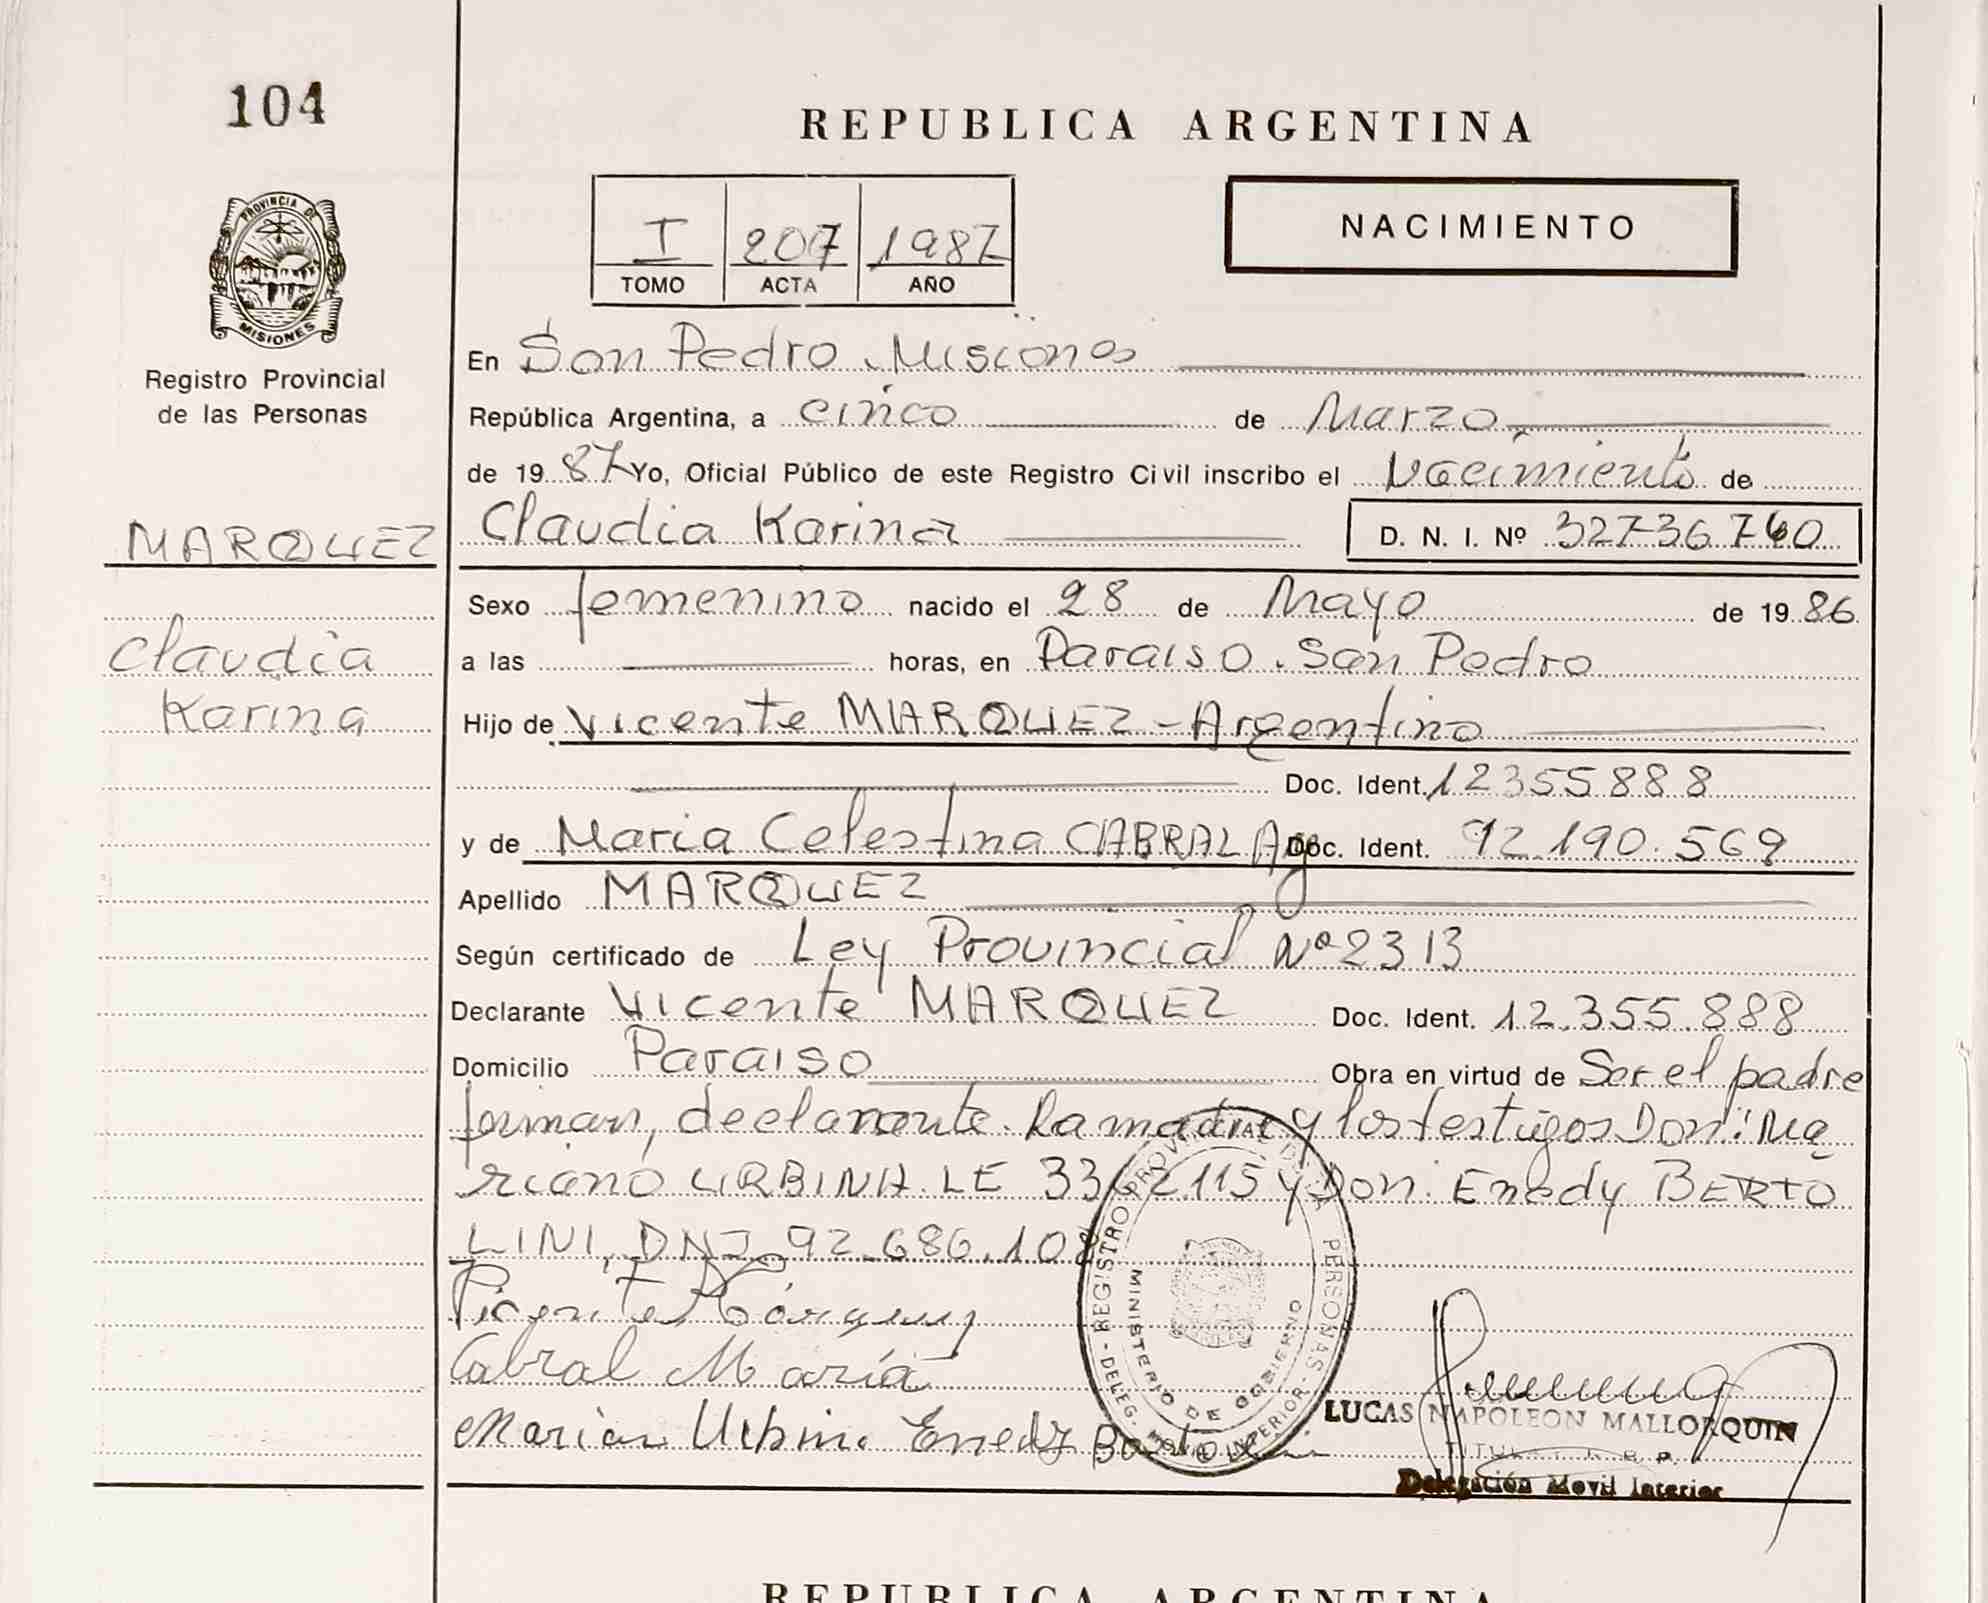 104
REPUBLICA ARGENTINA
PROVINCIA DE
MISIONES
Registro Provincial
de las Personas
I 207 1987
TOMO ACTA AÑO
NACIMIENTO
En San Pedro Misiones
República Argentina, a cinco de Marzo
de 1987 Yo, Oficial Público de este Registro Civil inscribo el Nacimiento de
MARQUEZ
Claudia Karina D. N. I. Nº 32736760
Sexo femenino nacido el 28 de Mayo de 1986
Claudia
Karina
a las horas, en Paraiso. San Pedro
Hijo de Vicente MARQUEZ - Argentino
Doc. Ident. 12355888
y de Maria Celestina CABRAL Arg Doc. Ident. 92.190.569
Apellido MARQUEZ
Según certificado de Ley Provincial Nº 2313
Declarante Vicente MARQUEZ Doc. Ident. 12.355.888
Domicilio Paraiso Obra en virtud de Ser el padre
firman, declarante. La madre y los testigos Don: Ma
riano URBINA LE 3362115 y Don: Enedy BERTO
LINI, DNI 92.686.10
Vicente Márquez
Cabral María
Enedy
REGISTRO PROVINCIAL DE LAS PERSONAS - DELEG. MOVIL INTERIOR -
MINISTERIO DE GOBIERNO
LUCAS NAPOLEON MALLORQUIN
Delegación Movil Interior
REPUBLICA ARGENTINA